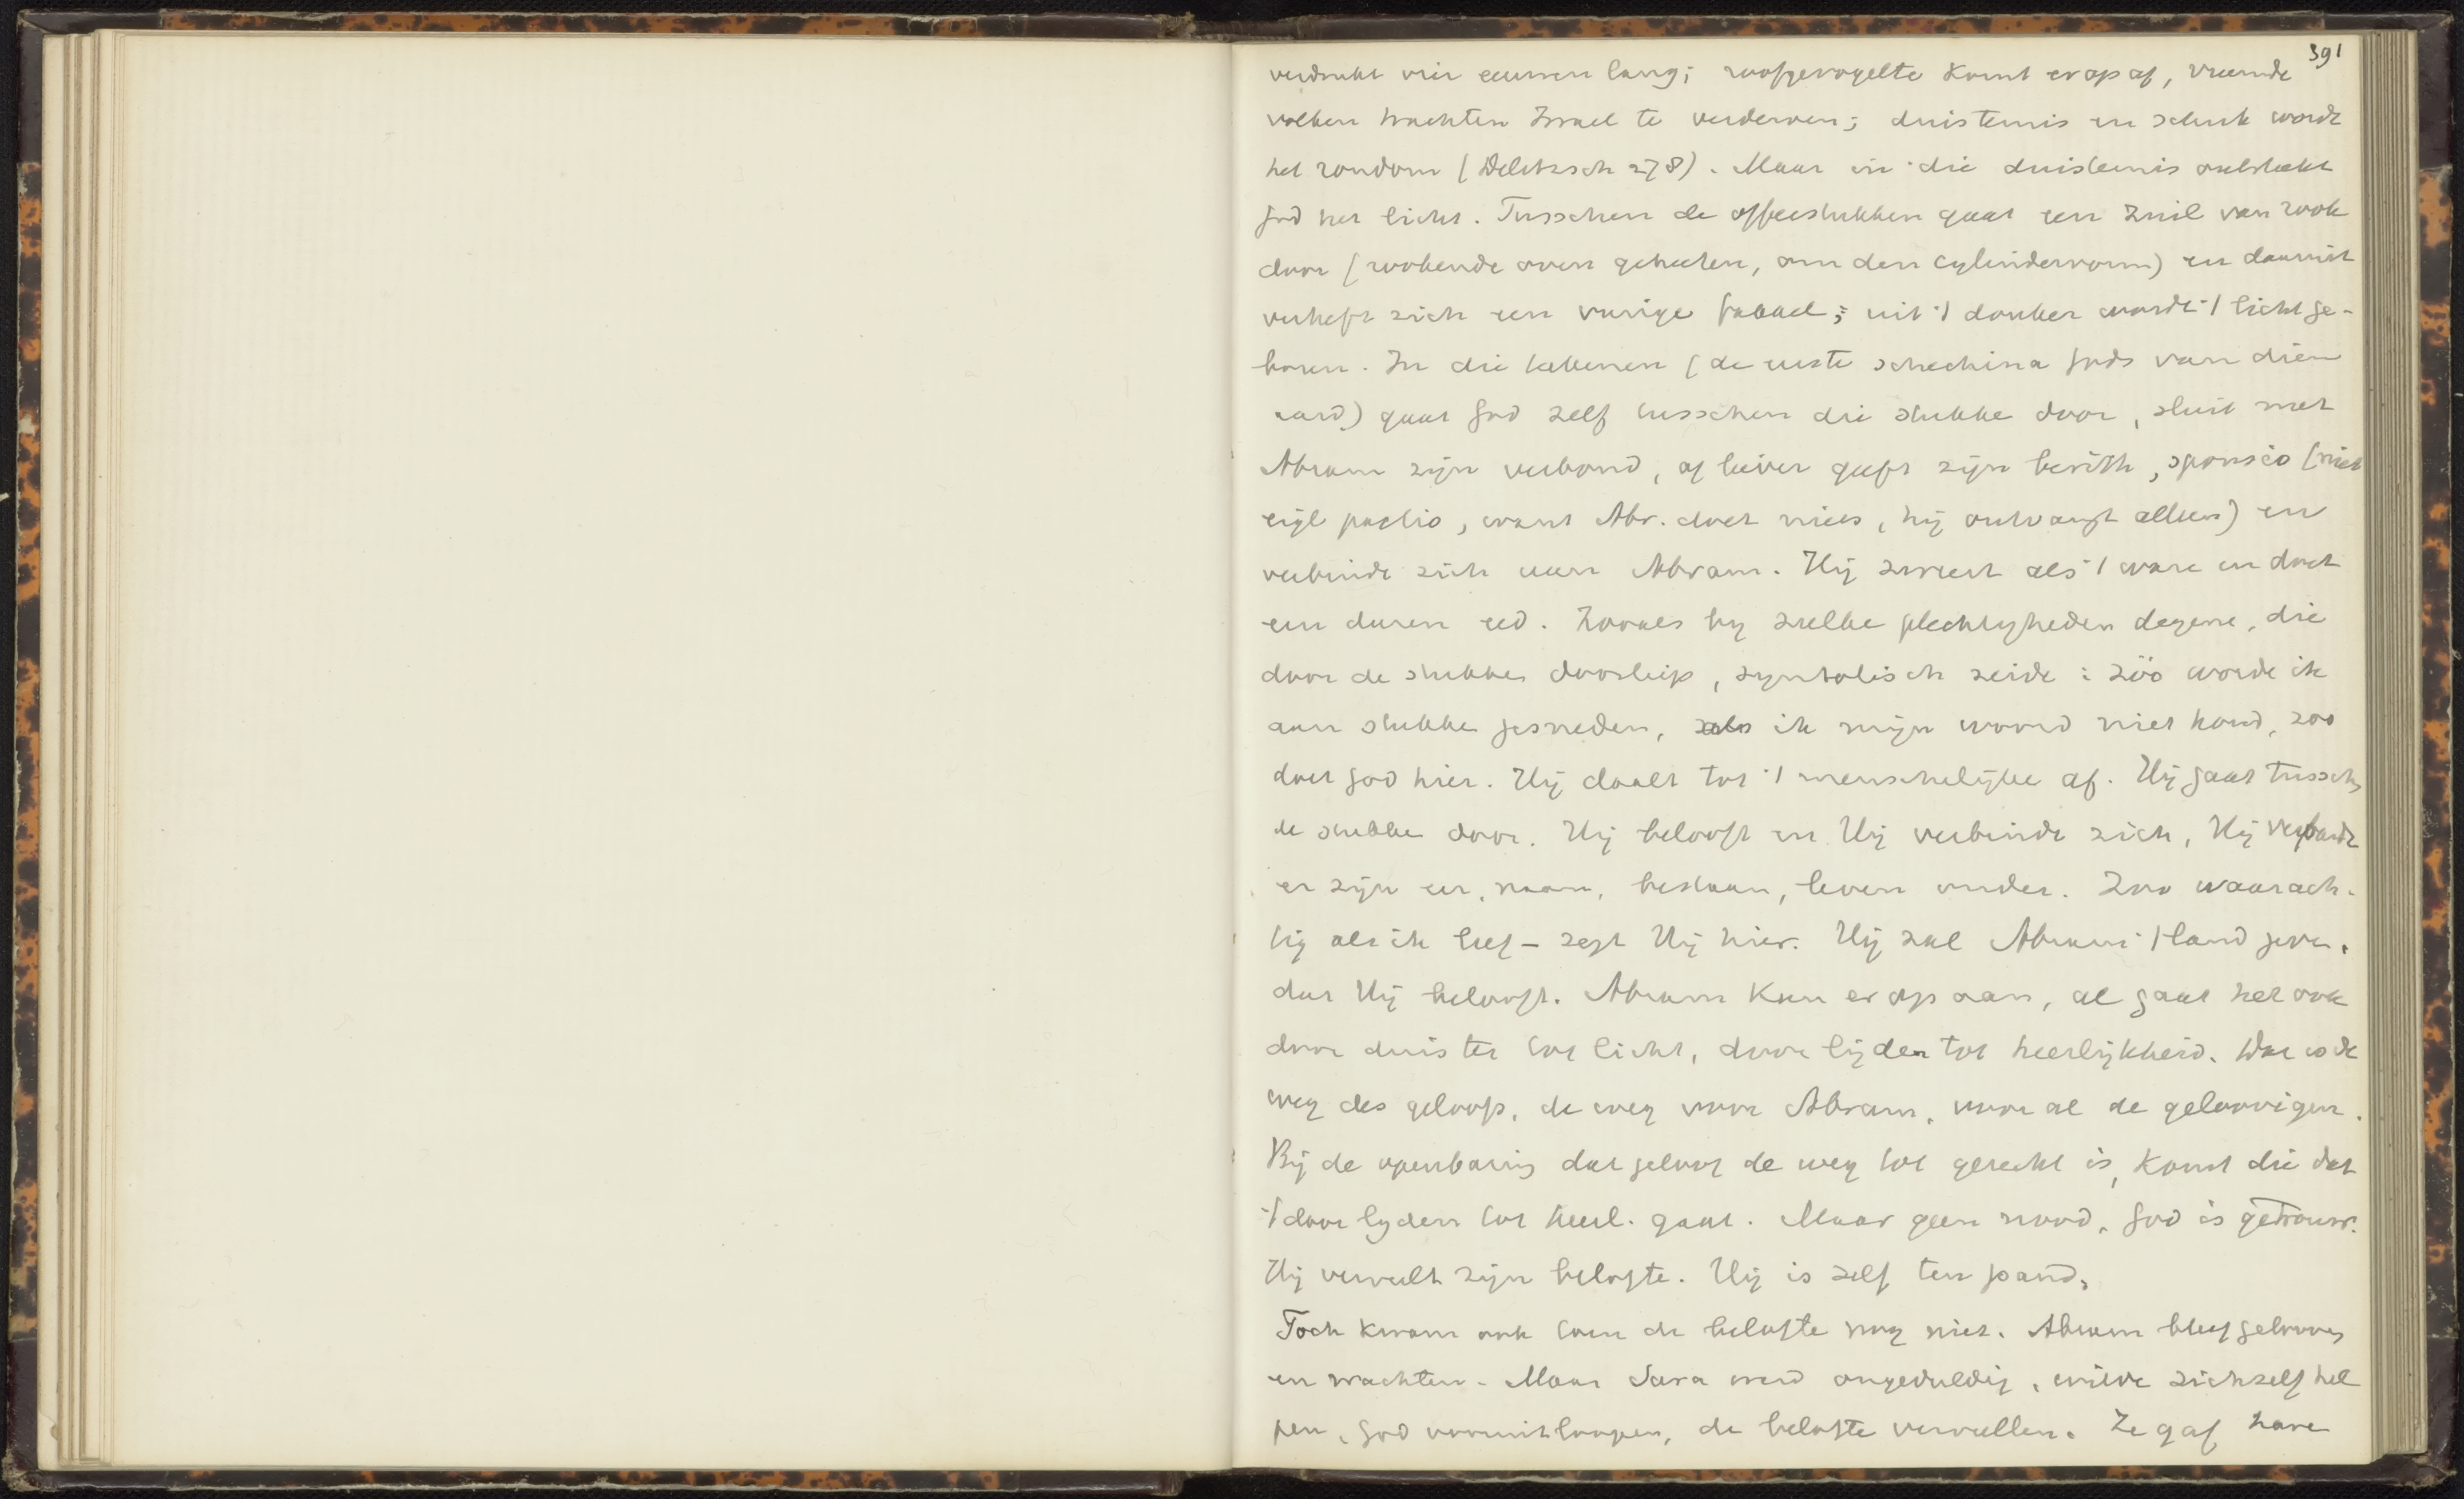 391
verdrukt vier eeuwen lang; roofgevogelte komt erop af, vreemde
volken trachten Israel te verderven; duisternis en schrik wordt
het rondom (Delitzsch 278). Maar in die duisternis ontsteekt
God het licht. Tusschen de offerstukken gaat een zuil van rook
door (rookende oven geheeten, om den cylindervorm) en daaruit
verheft zich een vurige fakkel; uit 't donker wordt 't licht ge-
boren. In die teekenen (de eerste schechina Gods van dien
aard) gaat God zelf tusschen die stukke door, sluit met
Abram zijn verbond, of liever geeft zijn berith, sponsio (niet
eigl pactio, want Abr. doet niets, hij ontvangt alleen) en
verbindt zich aan Abram. Hij zweert als 't ware en doet
een duren eed. Zooals by zulke plechtigheden degene, die
door de stukken doorliep, symbolisch zeide: zóó worde ik
aan stukke gesneden, als ik mijn woord niet houd, zoo
doet God hier. Hij daalt tot 't menschelijke af. Hij gaat tusschen
de stukke door. Hij belooft en Hij verbindt zich, Hij verpandt
er zijn eer, naam, bestaan, leven onder. Zoo waarach-
tig als ik leef – zegt Hij hier. Hij zal Abram 't land geven,
dat Hij belooft. Abram kan erop aan, al gaat het ook
door duister tot licht, door lijden tot heerlijkheid. Dat is de
weg des geloofs, de weg voor Abram, voor al de geloovigen.
Bij de openbaring dat geloof de weg tot gerecht is, komt die dat
't door lyden tot heerl. gaat. Maar geen nood, God is getrouw.
Hij vervult zijn belofte. Hij is zelf ten pand.
Toch kwam ook toen de belofte nog niet. Abram bleef gelooven
en wachten. Maar Sara werd ongeduldig, wilde zichzelf hel
pen, God vooruitloopen, de belofte vervullen. Ze gaf hare